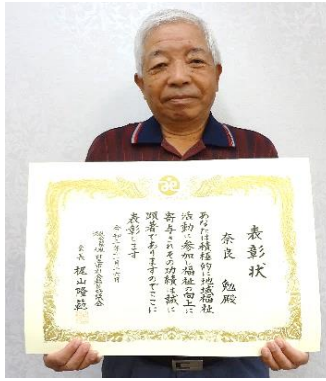 表彰状
奈良　勉殿
あなたは積極的に地域福祉
活動に参加し福祉の向上に
寄与されその功績は誠に
顕著でありますのでここに
表彰します
会長　梶山隆範